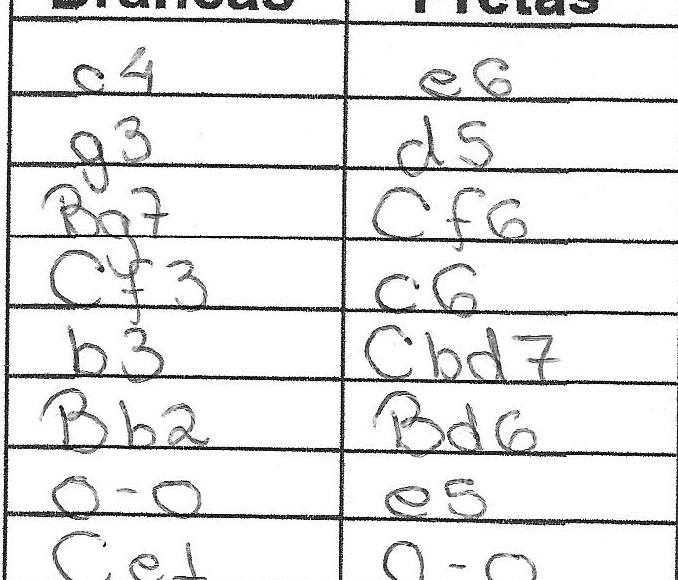 Brancas Pretas
c4 e6
g3 d5
Bg7 Cf6
Cf3 c6
b3 Cbd7
Bb2 Bd6
0-0 e5
Ce1 0-0